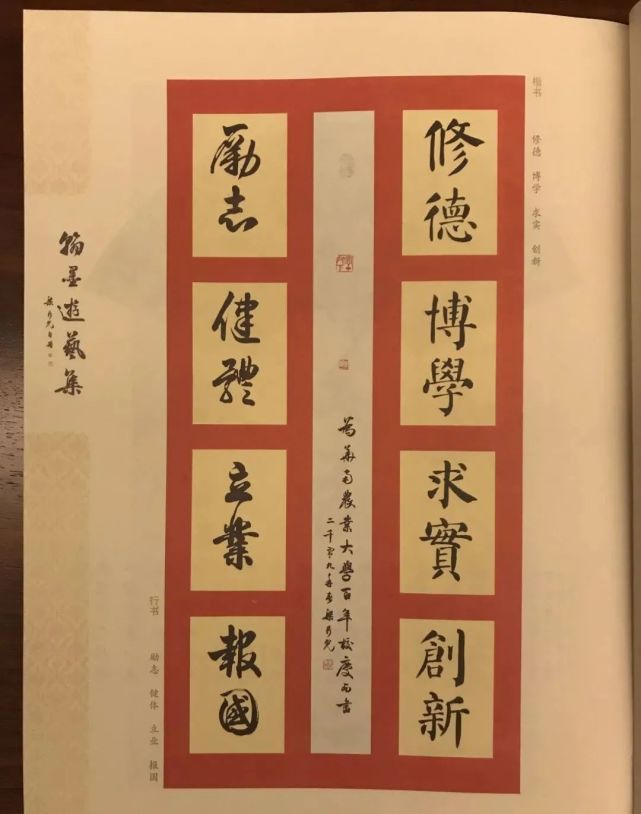 楷书 修德 博学 求实 创新
修德
博學
求實
創新
為華南農業大學百年校慶而書
二千零九年
勵志
健體
立業
報國
行书 励志 健体 立业 报国
翰墨遊藝集